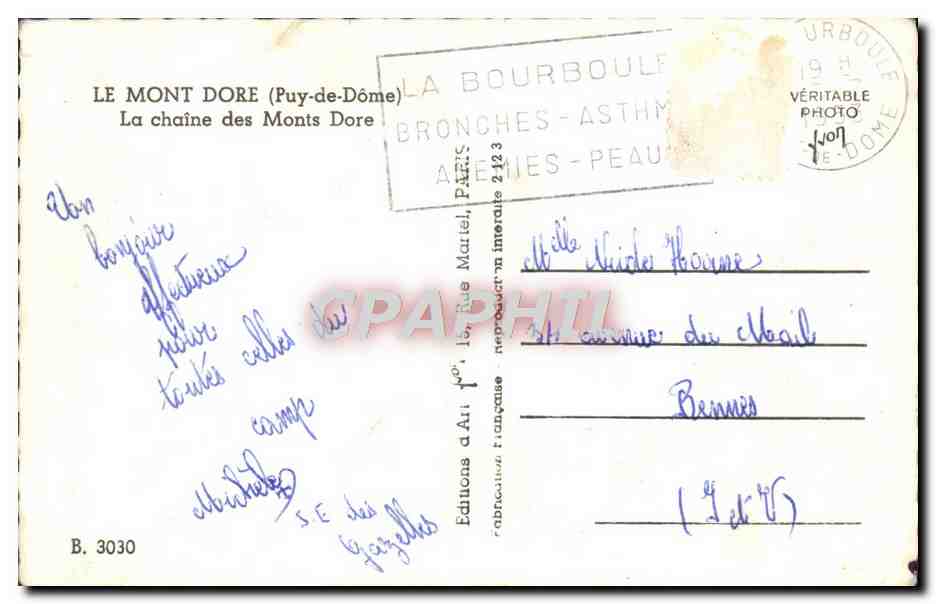 LE MONT DORE (Puy-de-Dôme)
La chaîne des Monts Dore
LA BOURBOULE
BRONCHES - ASTHM
ANEMIES - PEAU
OURBOULE
19 H
1953
DE-DOME
VÉRITABLE
PHOTO
Yvon
bonjour
affectueux
pour
toutes celles du
camp
Michèle
S.E des
gazelles
B. 3030
Editions d'Art Yvon, 15, Rue Martel, PARIS
Fabrication Française - Reproduction interdite 2-123
CPAPHIL
Mlle
avenue du Mail
Rennes
(I et V)